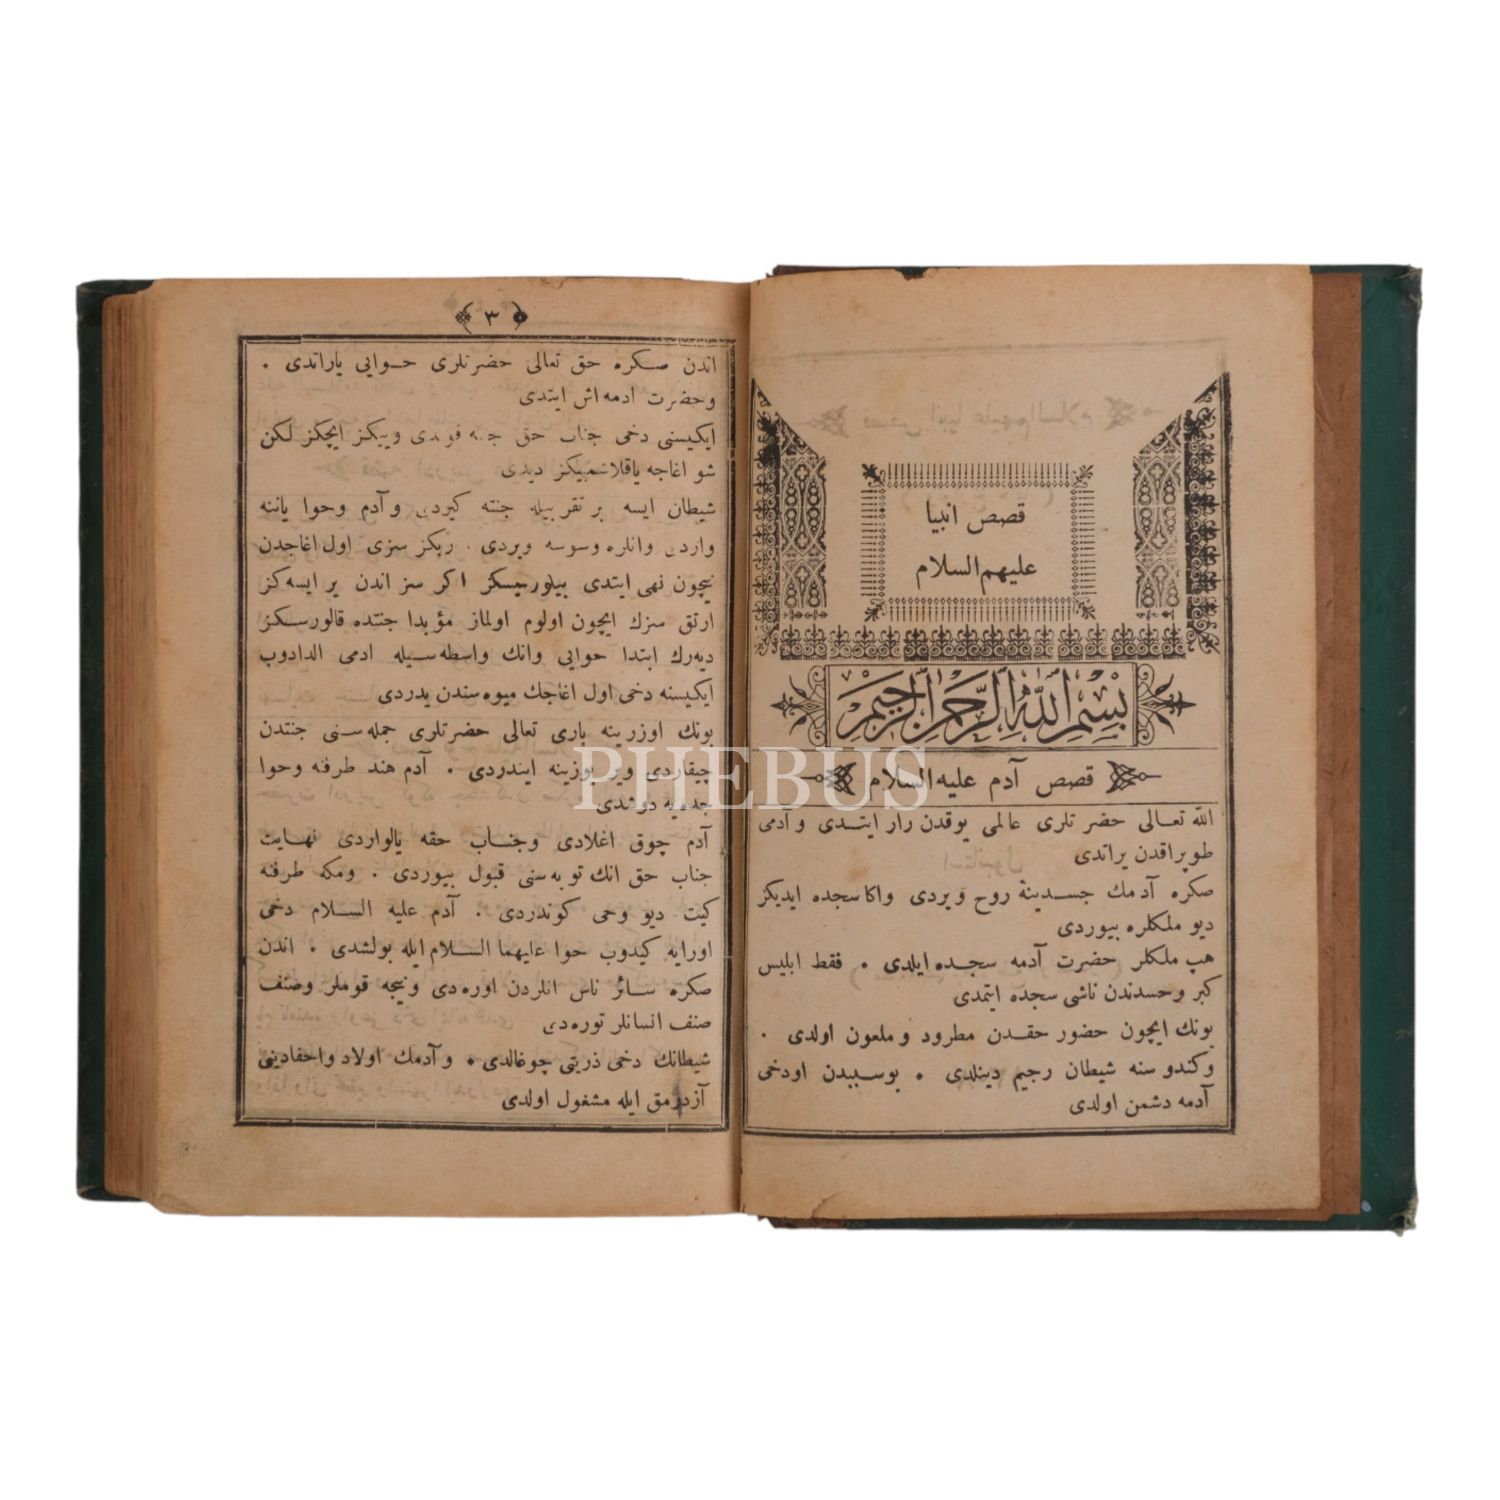 قصص انبیا
علیهم السلام
بِسْمِ اللّٰهِ الرَّحْمٰنِ الرَّحِیمِ
قصص آدم علیه السلام
اللّٰه تعالی حضرتلری عالمی یوقدن وار ایتدی و آدمی
طوپراقدن یراتدی
صکره آدمك جسدینه روح ویردی واکا سجده ایدیکز
دیو ملکلره بیوردی
هپ ملکلر حضرت آدمه سجده ایلدی • فقط ابلیس
کبر وحسدندن ناشی سجده ایتمدی
بونك ایچون حضور حقدن مطرود و ملعون اولدی •
وکندوسنه شیطان رجیم دینلدی • بوسببدن اودخی
آدمه دشمن اولدی
۳
اندن صکره حق تعالی حضرتلری حوایی یاراتدی •
وحضرت ادمه اش ایتدی
ایکیسنی دخی جناب حق جنته قویدی وییکز ایچکز لکن
شو اغاجه یاقلاشمیکز دیدی
شیطان ایسه بر تقریبله جنته کیردی و آدم وحوا یاننه
واردی وانلره وسوسه ویردی • ربکز سزی اول اغاجدن
نیچون نهی ایتدی بیلورمیسکز اکر سز اندن یر ایسه کز
ارتق سزك ایچون اولوم اولماز مؤبدا جنتده قالورسکز
دیه رك ابتدا حوایی وانك واسطه سیله ادمی الدادوب
ایکیسنه دخی اول اغاجك میوه سندن یدردی
بونك اوزرینه باری تعالی حضرتلری جمله سنی جنتدن
چیقاردی ویر یوزینه ایندردی • آدم هند طرفه وحوا
جده یه دوشدی
آدم چوق اغلادی وجناب حقه یالواردی نهایت
جناب حق انك توبه سنی قبول بیوردی • ومکه طرفنه
کیت دیو وحی کوندردی • آدم علیه السلام دخی
اورایه کیدوب حوا علیهما السلام ایله بولشدی • اندن
صکره سائر ناس انلردن اوره دی ونیجه قوملر وصنف
صنف انسانلر توره دی
شیطانك دخی ذریتی چوغالدی • و آدمك اولاد واحفادینی
آزدرمق ایله مشغول اولدی
PHEBUS